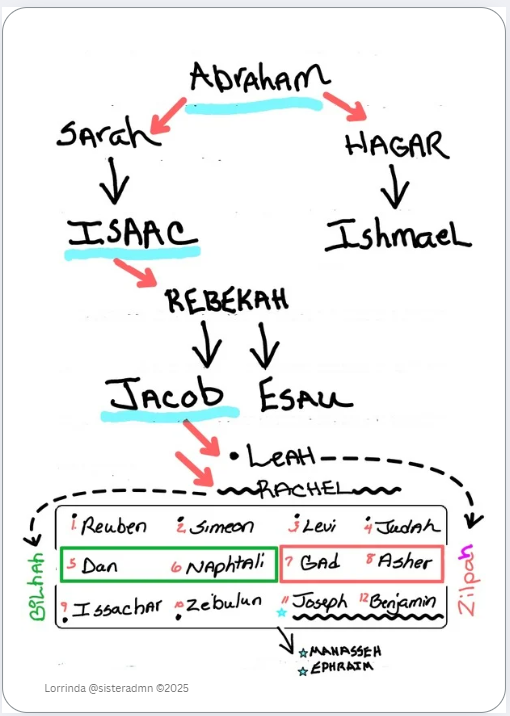 Abraham
Sarah HAGAR
ISAAC Ishmael
REBEKAH
Jacob Esau
• Leah
RACHEL
1. Reuben 2. Simeon 3 Levi 4 Judah
5 Dan 6 Naphtali 7 Gad 8 Asher
9 Issachar 10 Zebulun 11 Joseph 12 Benjamin
Bilhah
Zilpah
☆ MANASSEH
☆ EPHRAIM
Lorrinda @sisteradmn ©2025